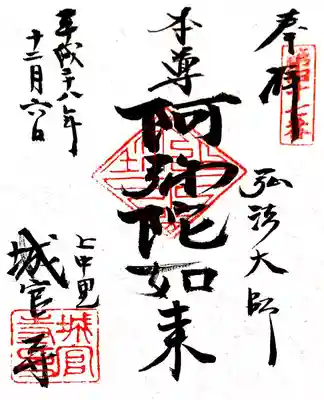 奉拝
弘法大師
本尊
阿弥陀如来
平成二十八年
十二月六日
上中里
城官寺
城官寺